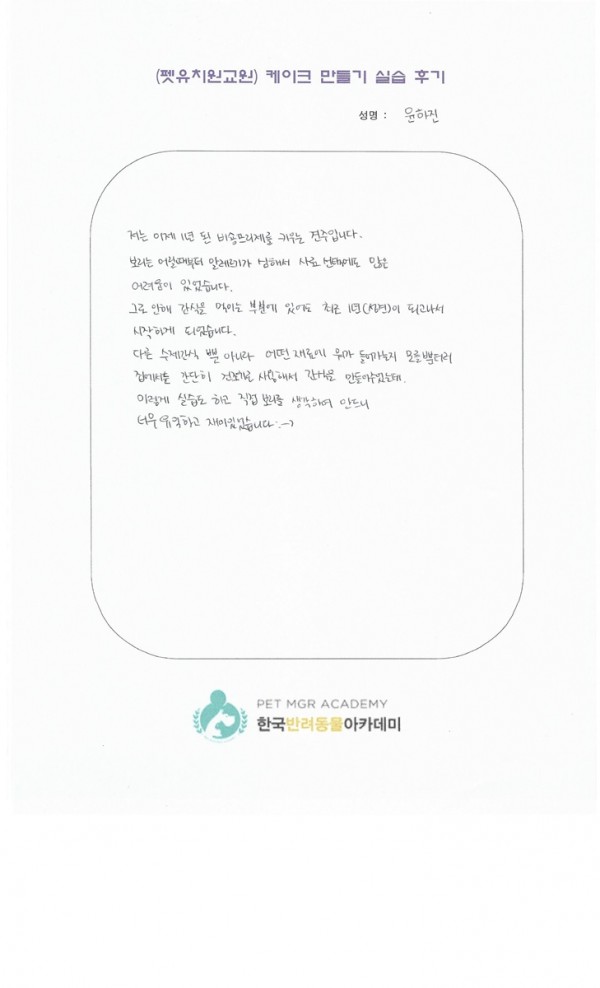 (펫유치원교원) 케이크 만들기 실습 후기
성명 : 윤하진
저는 이제 1년 된 비숑프리제를 키우는 견주입니다.
보리는 어릴때부터 알레르기가 심해서 사료 선택에도 많은
어려움이 있었습니다.
그로 인해 간식을 먹이는 부분에 있어도 최근 1년(성견)이 되고나서
시작하게 되었습니다.
다른 수제간식 뿐 아니라 어떤 재료에 뭐가 들어가는지 모를뿐더러
집에서는 간단히 건조기를 사용해서 간식을 만들어주었는데.
이렇게 실습도 하고 직접 보리를 생각하며 만드니
너무 유익하고 재미있었습니다 :-)
PET MGR ACADEMY
한국반려동물아카데미